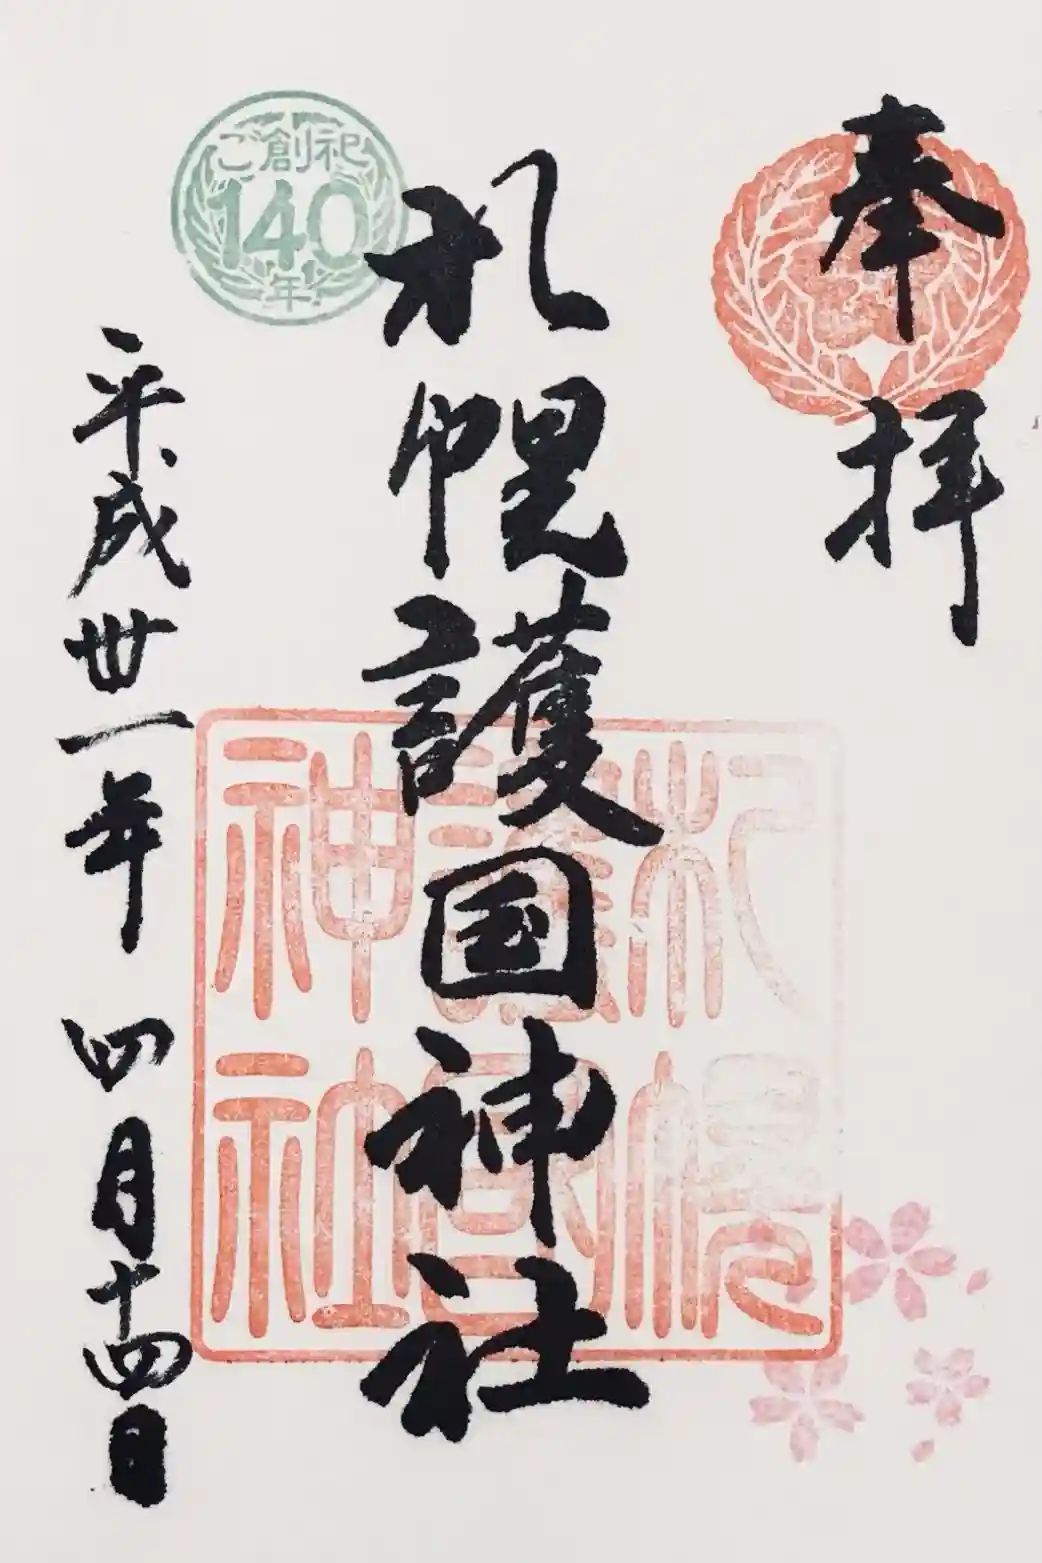 奉拝
札幌護国神社
平成卅一年 四月十四日
ご創祀
140
年
札幌
護国
神社